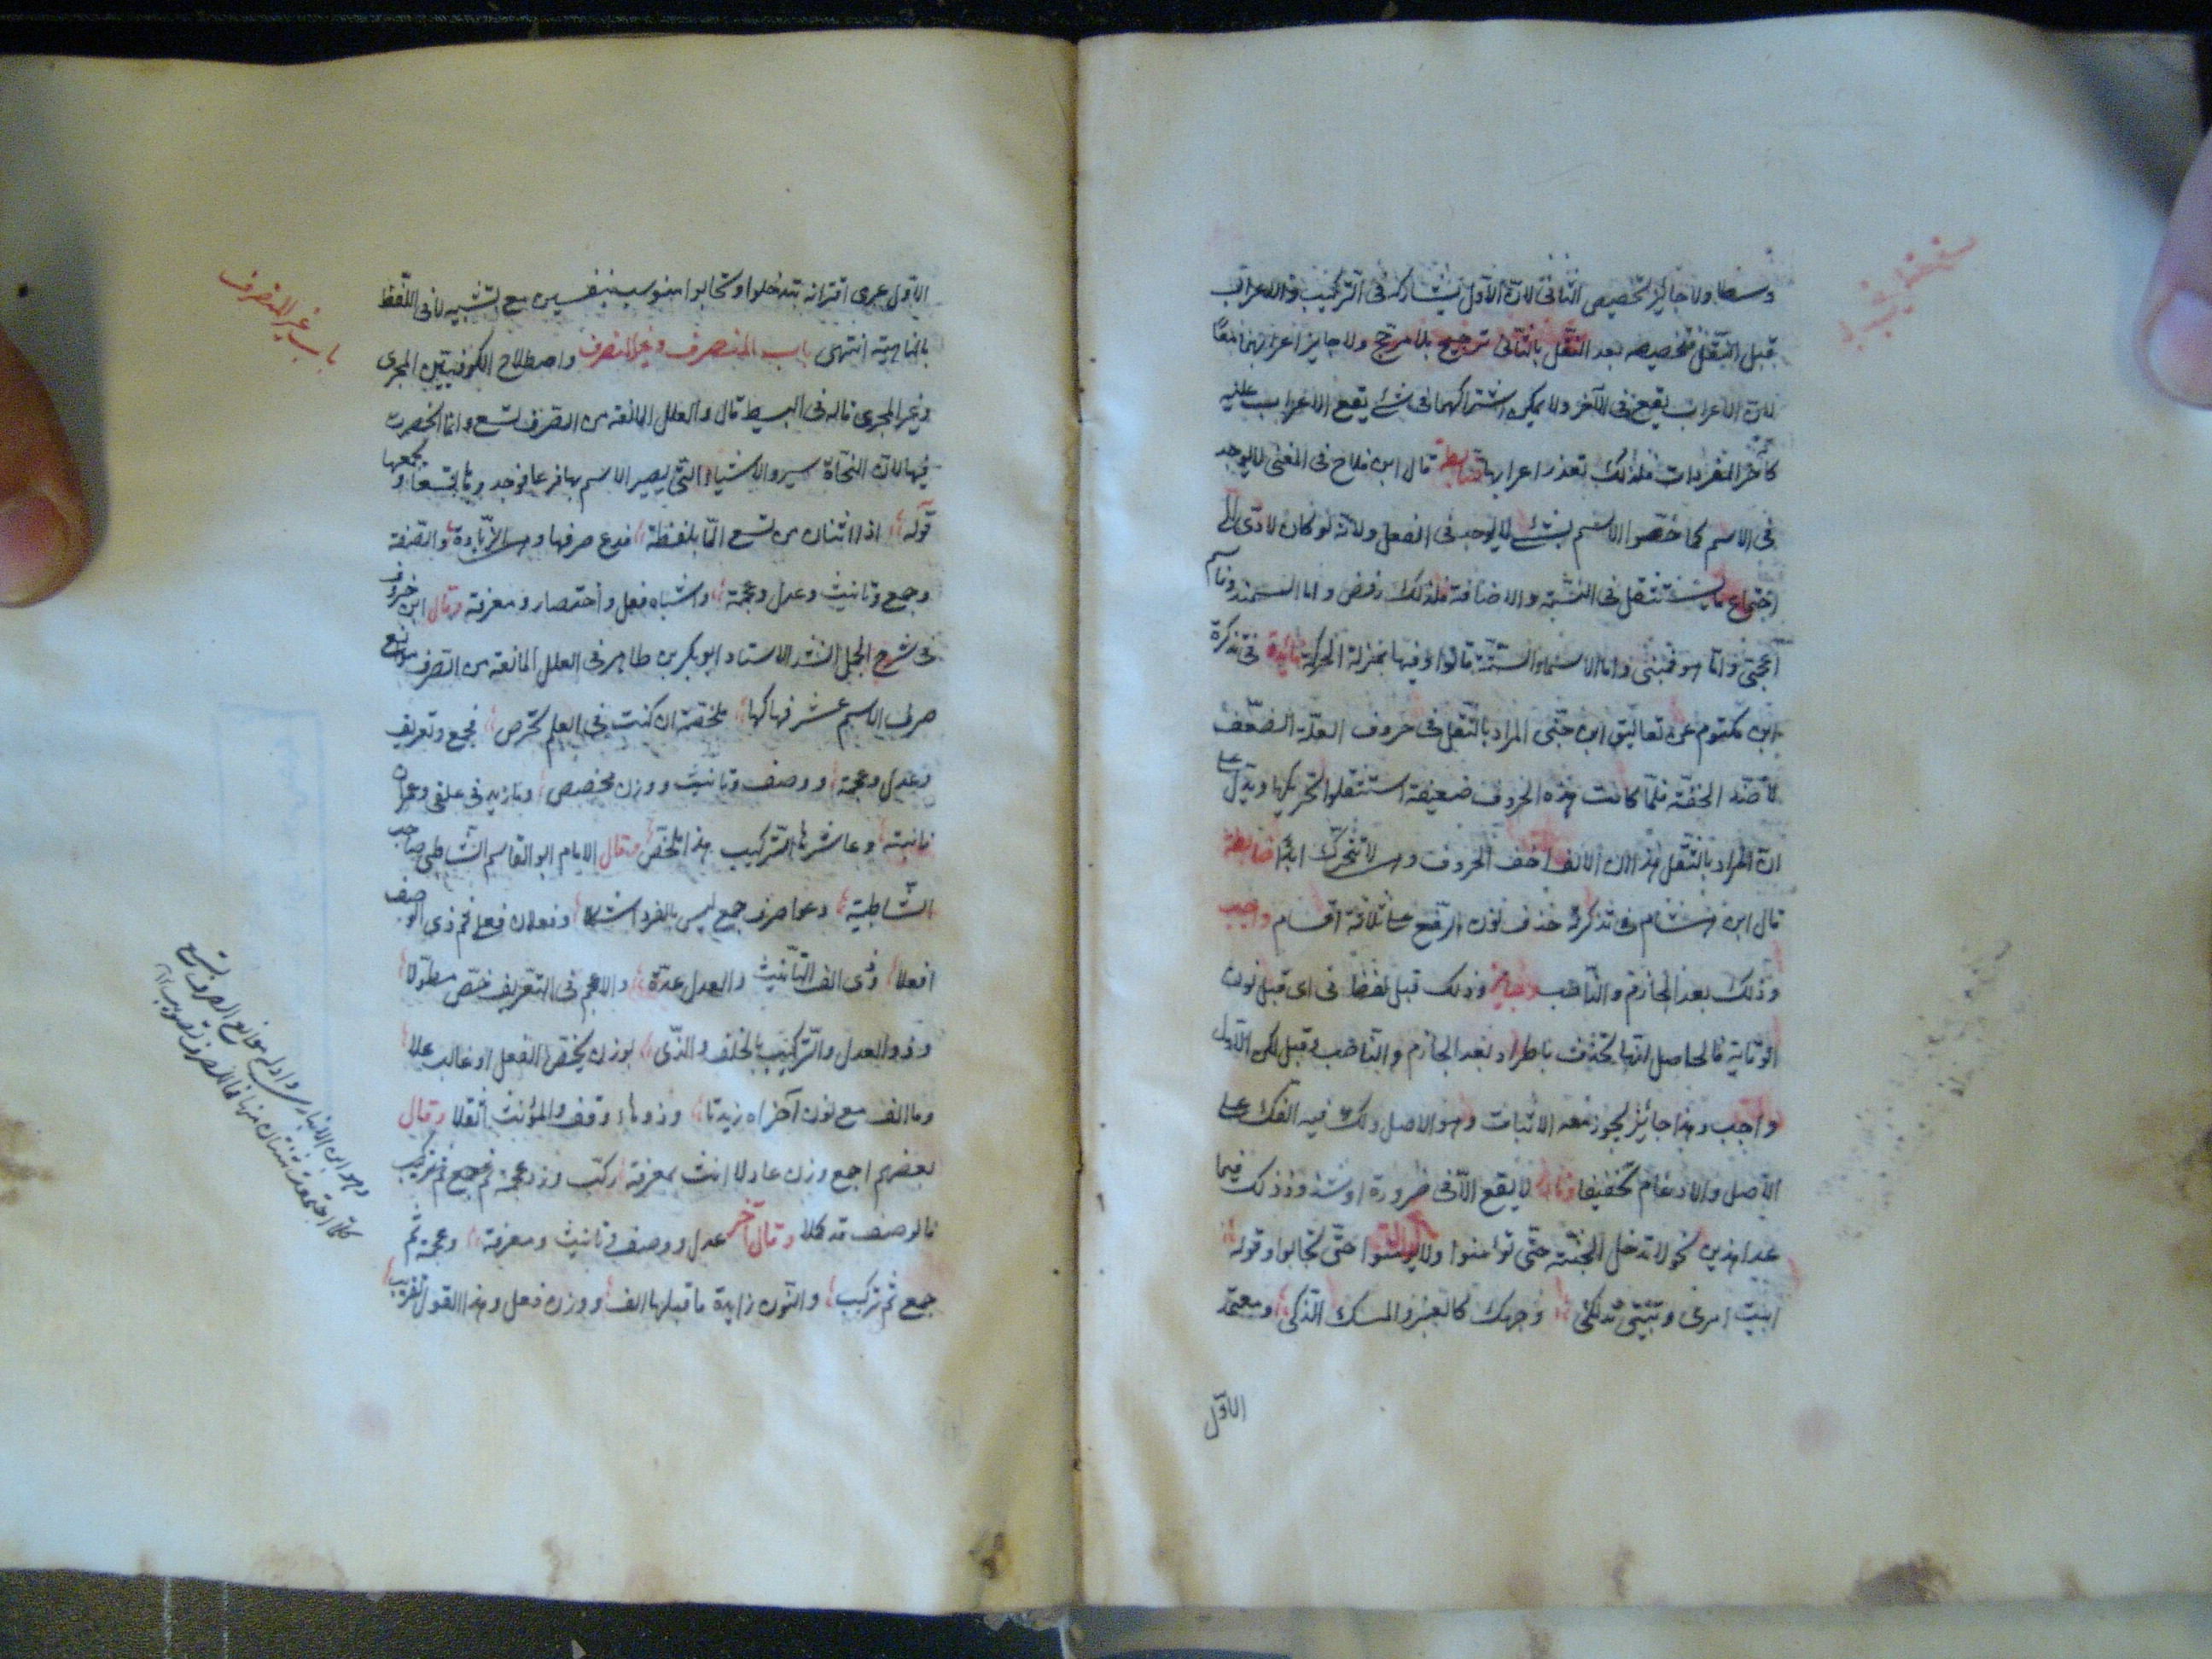 وسطا ولا جائز تخصيص الثاني لان الاول يشاركه في التركيب والاعراب
قبل النقل فتخصيصه بعد النقل بالثاني ترجيح بلا مرجح ولا جايز اعرابهما معا
لان الاعراب يقع في الآخر ولا يمكن اشتراكهما في شئ يقع الاعراب عليه
كآخر المفردات فلذلك تعذر اعرابها ضابطة قال ابن فلاح في المغنى لا يوجد
في الاسم كما خصوا الاسم بشئ لا يوجد في الفعل ولانه لو كان لادى الى
اجتماع ما يستثقل في النسبة والاضافة فلذلك رفض واما السمندو فاسم
اعجمي واما هو فمبنى واما الاسماء الستة قالوا وفيها بمنزلة الحركة فائدة في تذكرة
ابن مكتوم عن تعاليق ابن جنى المراد بالثقل في حروف العلة الضعف
لا ضد الخفة فلما كانت هذه الحروف ضعيفة استثقلوا تحريكها ويدل على
ان المراد بالثقل هذا ان الالف اخف الحروف وهى لا تتحرك ابدا ضابطة
قال ابن هشام في تذكرته حذف نون الرفع على ثلاثة اقسام واجب
وذلك بعد الجازم والناصب وجائز وذلك قبل لفظ في اى قبل نون
الوقاية فالحاصل انها تحذف باطراد بعد الجازم والناصب وقبل لكن الاول
واجب وهذا جائز يجوز معه الاثبات وهو الاصل ولك فيه الفك على
الاصل والادغام تخفيفا ونادر لا يقع الا في ضرورة او شذوذ وذلك فيما
عدا هذين نحو لا تدخل الجنة حتى تؤمنوا ولا تؤمنوا حتى تحابوا وقوله
ابيت اسرى وتبيتى تدلكى وجهك بالعنبر والمسك الذكى ومعتمد
الاول
الاول عرى اقترانه بتدخلوا وتحابوا منوسب بنفسين مع التشبيه لا في اللفظ
بالناهية انتهى باب المنصرف وغير المنصرف واصطلاح الكوفيين المجرى
وغير المجرى قاله في البسيط قال والعلل المانعة من الصرف تسع وانما انحصرت
فيها لان النحاة سبروا الاشياء التى يصير الاسم بها فرعا فوجدوها تسعا ويجمعها
قوله اذا اثنان من تسع الما بلفظة فدع صرفها وهى الزيادة والصفة
وجمع وتانيث وعدل وعجمة واشباه فعل واختصار ومعرفة وقال ابن خروف
في شرح الجمل انشد الاستاد ابو بكر بن طاهر في العلل المانعة من الصرف موانع
صرف الاسم عشر فهاكها ملخصة ان كنت في العلم تحرص فجمع وتعريف
وعدل وعجمة ووصف وتانيث ووزن مخصص وما زيد في علقى وعمران
فانتبه وعاشرها التركيب هذا ملخص وقال الامام ابو القاسم الشاطبى صاحب
الشاطبية دعوا صرف جمع ليس بالفرد اشكلا وفعلان فعلى ثم ذى الوصف
افعلا وذى الف التانيث والعدل عدة والاعجم في التعريف خص مطولا
وذو العدل والتركيب بالخلف والذى بوزن يخص الفعل او غالب علا
وما الف مع نون اخراه زيدتا وذوهاء وقف والمؤنث اثقلا وقال
بعضهم اجمع وزن عادلا انث بمعرفة ركب وزد عجمة
فالوصف قد كملا وقال آخر عدل ووصف وتانيث ومعرفة وعجمة ثم
جمع ثم تركيب والنون زايدة ما قبلها الف ووزن فعل وهذا القول تقريب
باب غير المنصرف
وهو ابن الانبارى واوله موانع الصرف تسع
كلما اجتمعت ثنتان منها فما للصرف تصويب